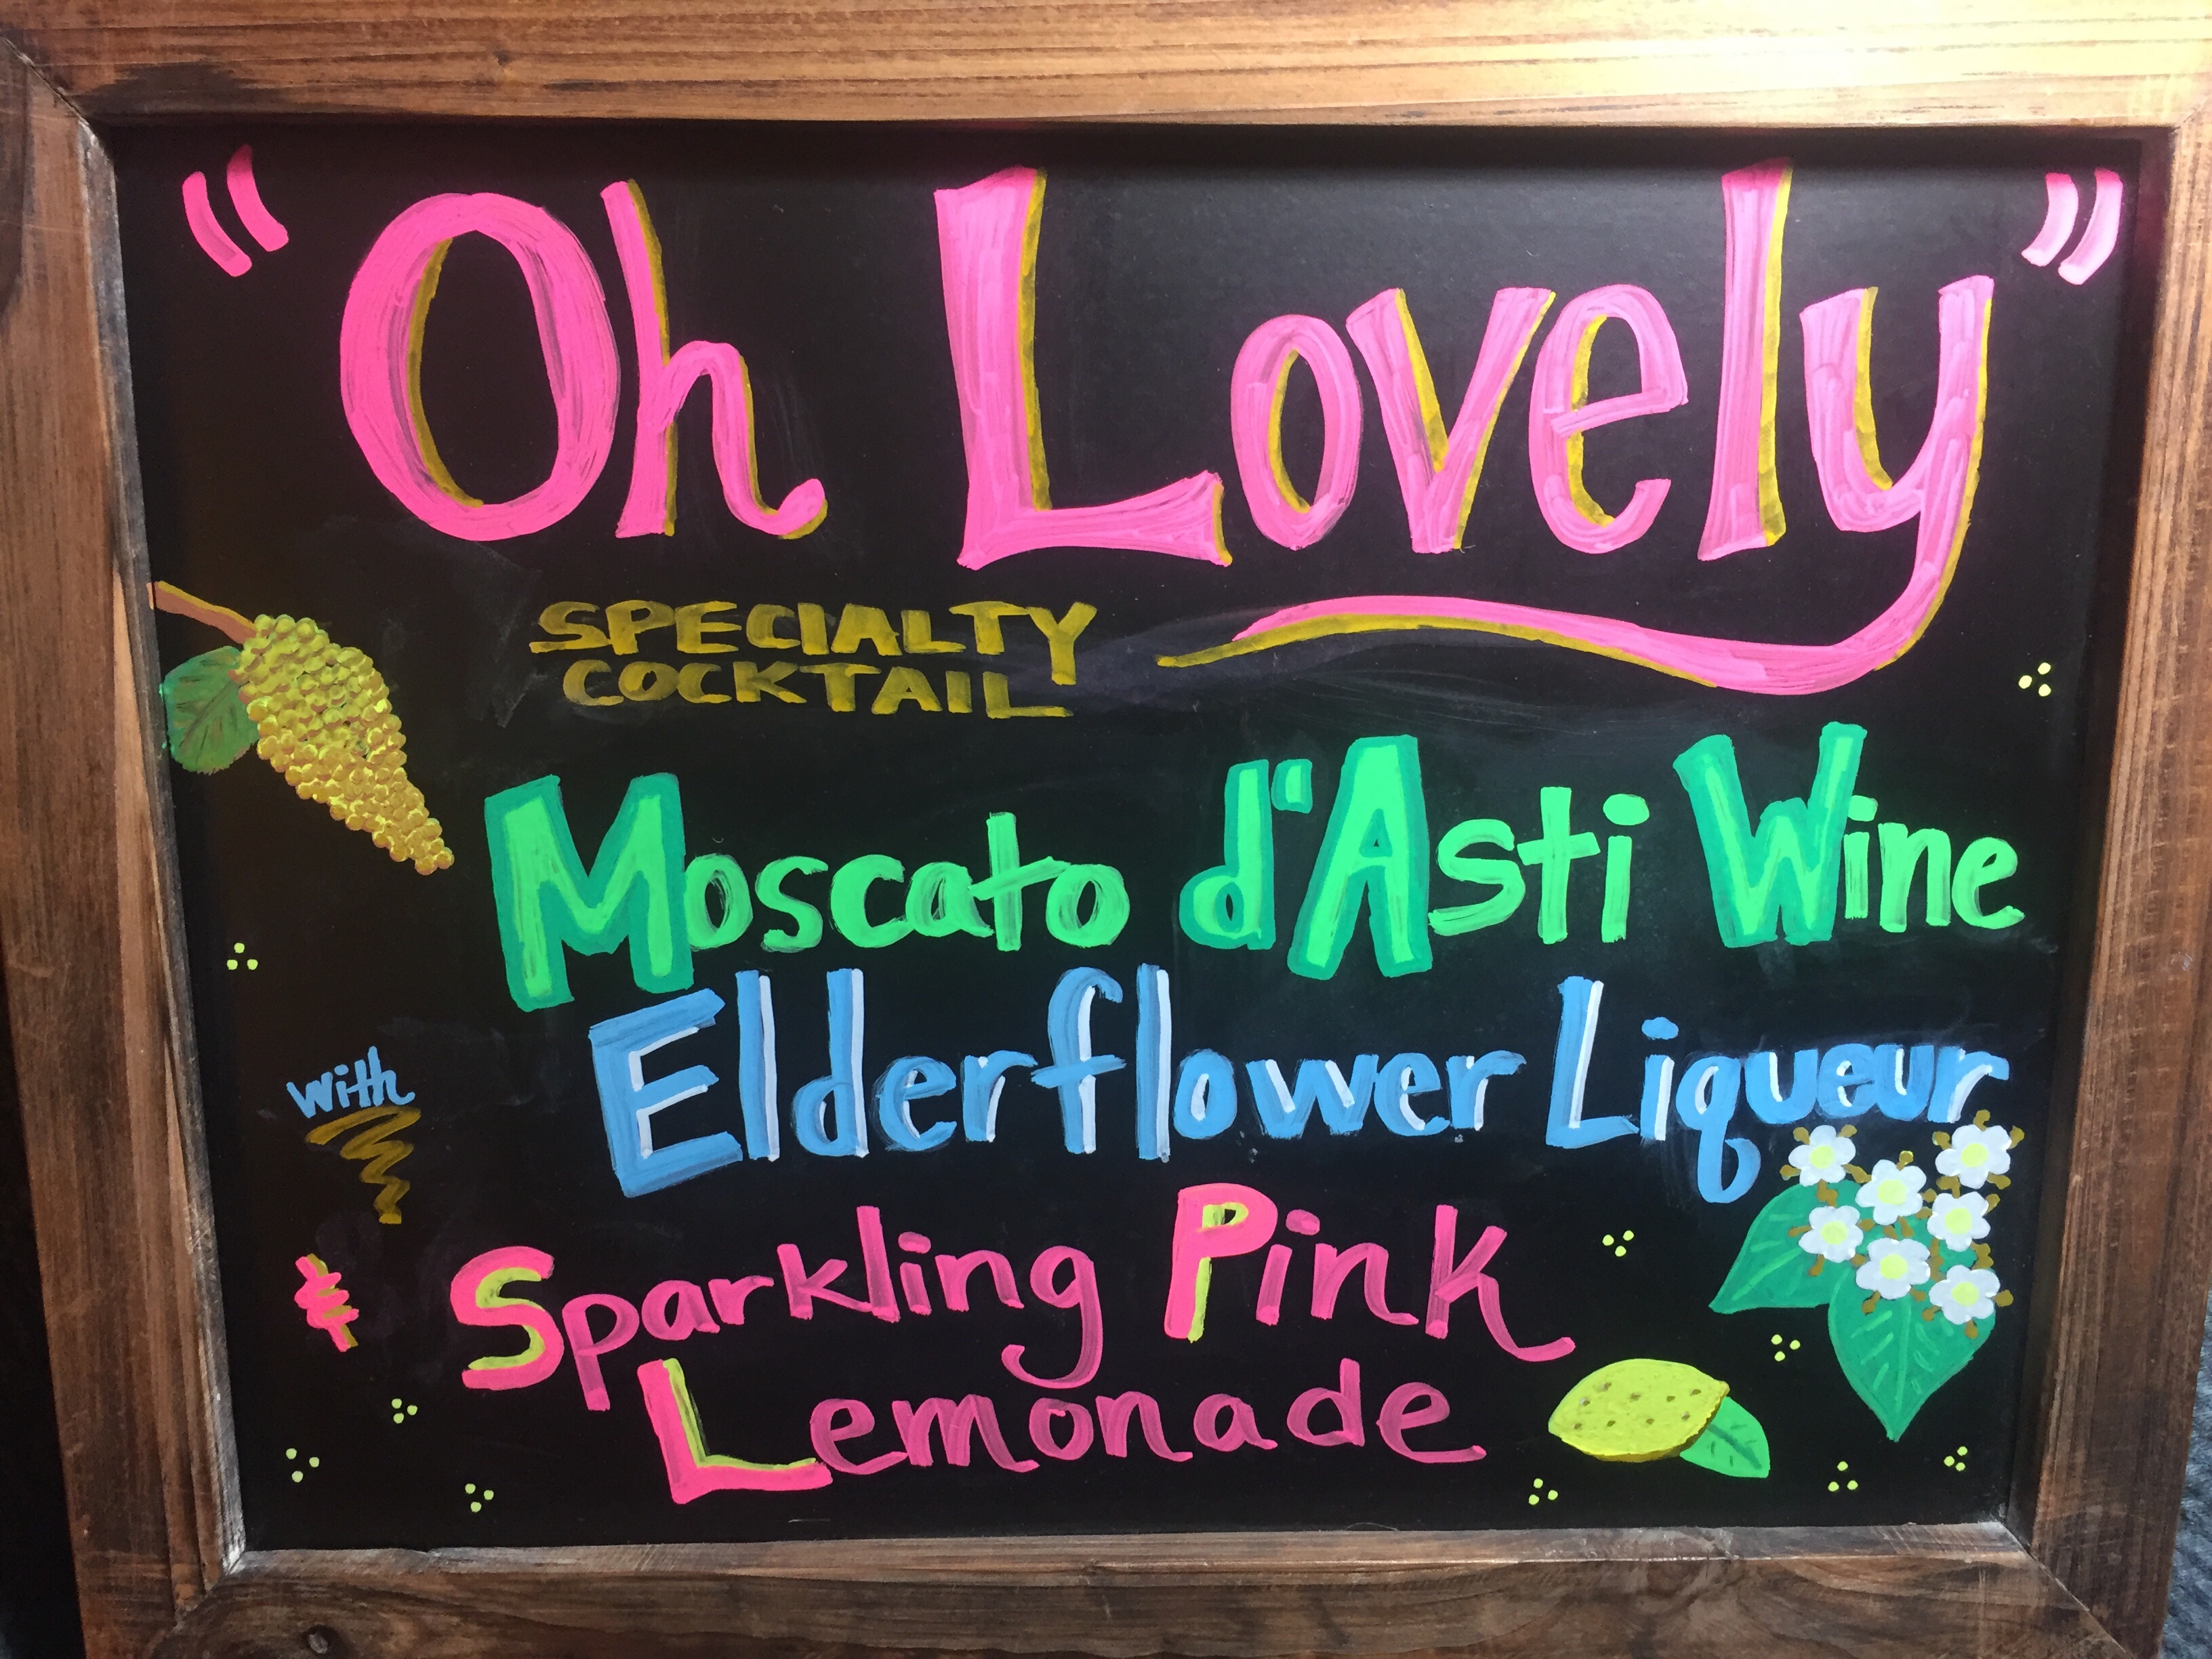 "Oh Lovely"
SPECIALTY
COCKTAIL
Moscato d'Asti Wine
with Elderflower Liqueur
& Sparkling Pink
Lemonade